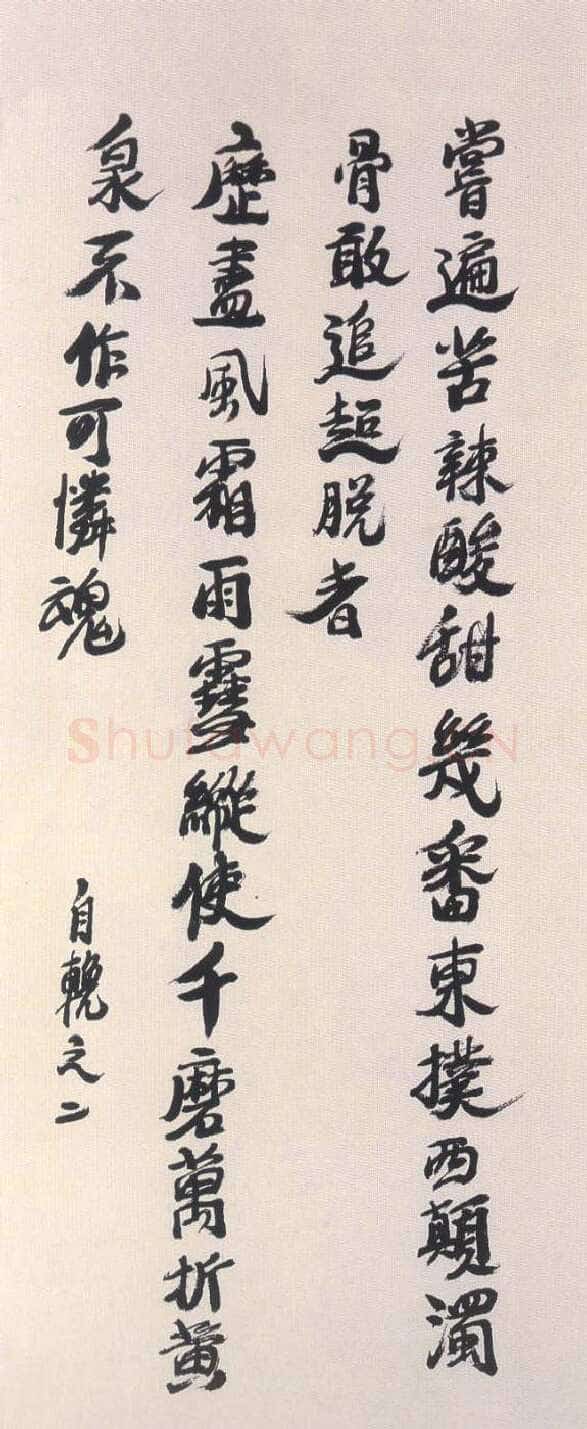 嘗遍苦辣酸甜幾番東撲西顛濁
骨敢追超脱者
歷盡風霜雨雪縱使千磨萬折黃
泉不作可憐魂
自輓之二
ShufawangCN